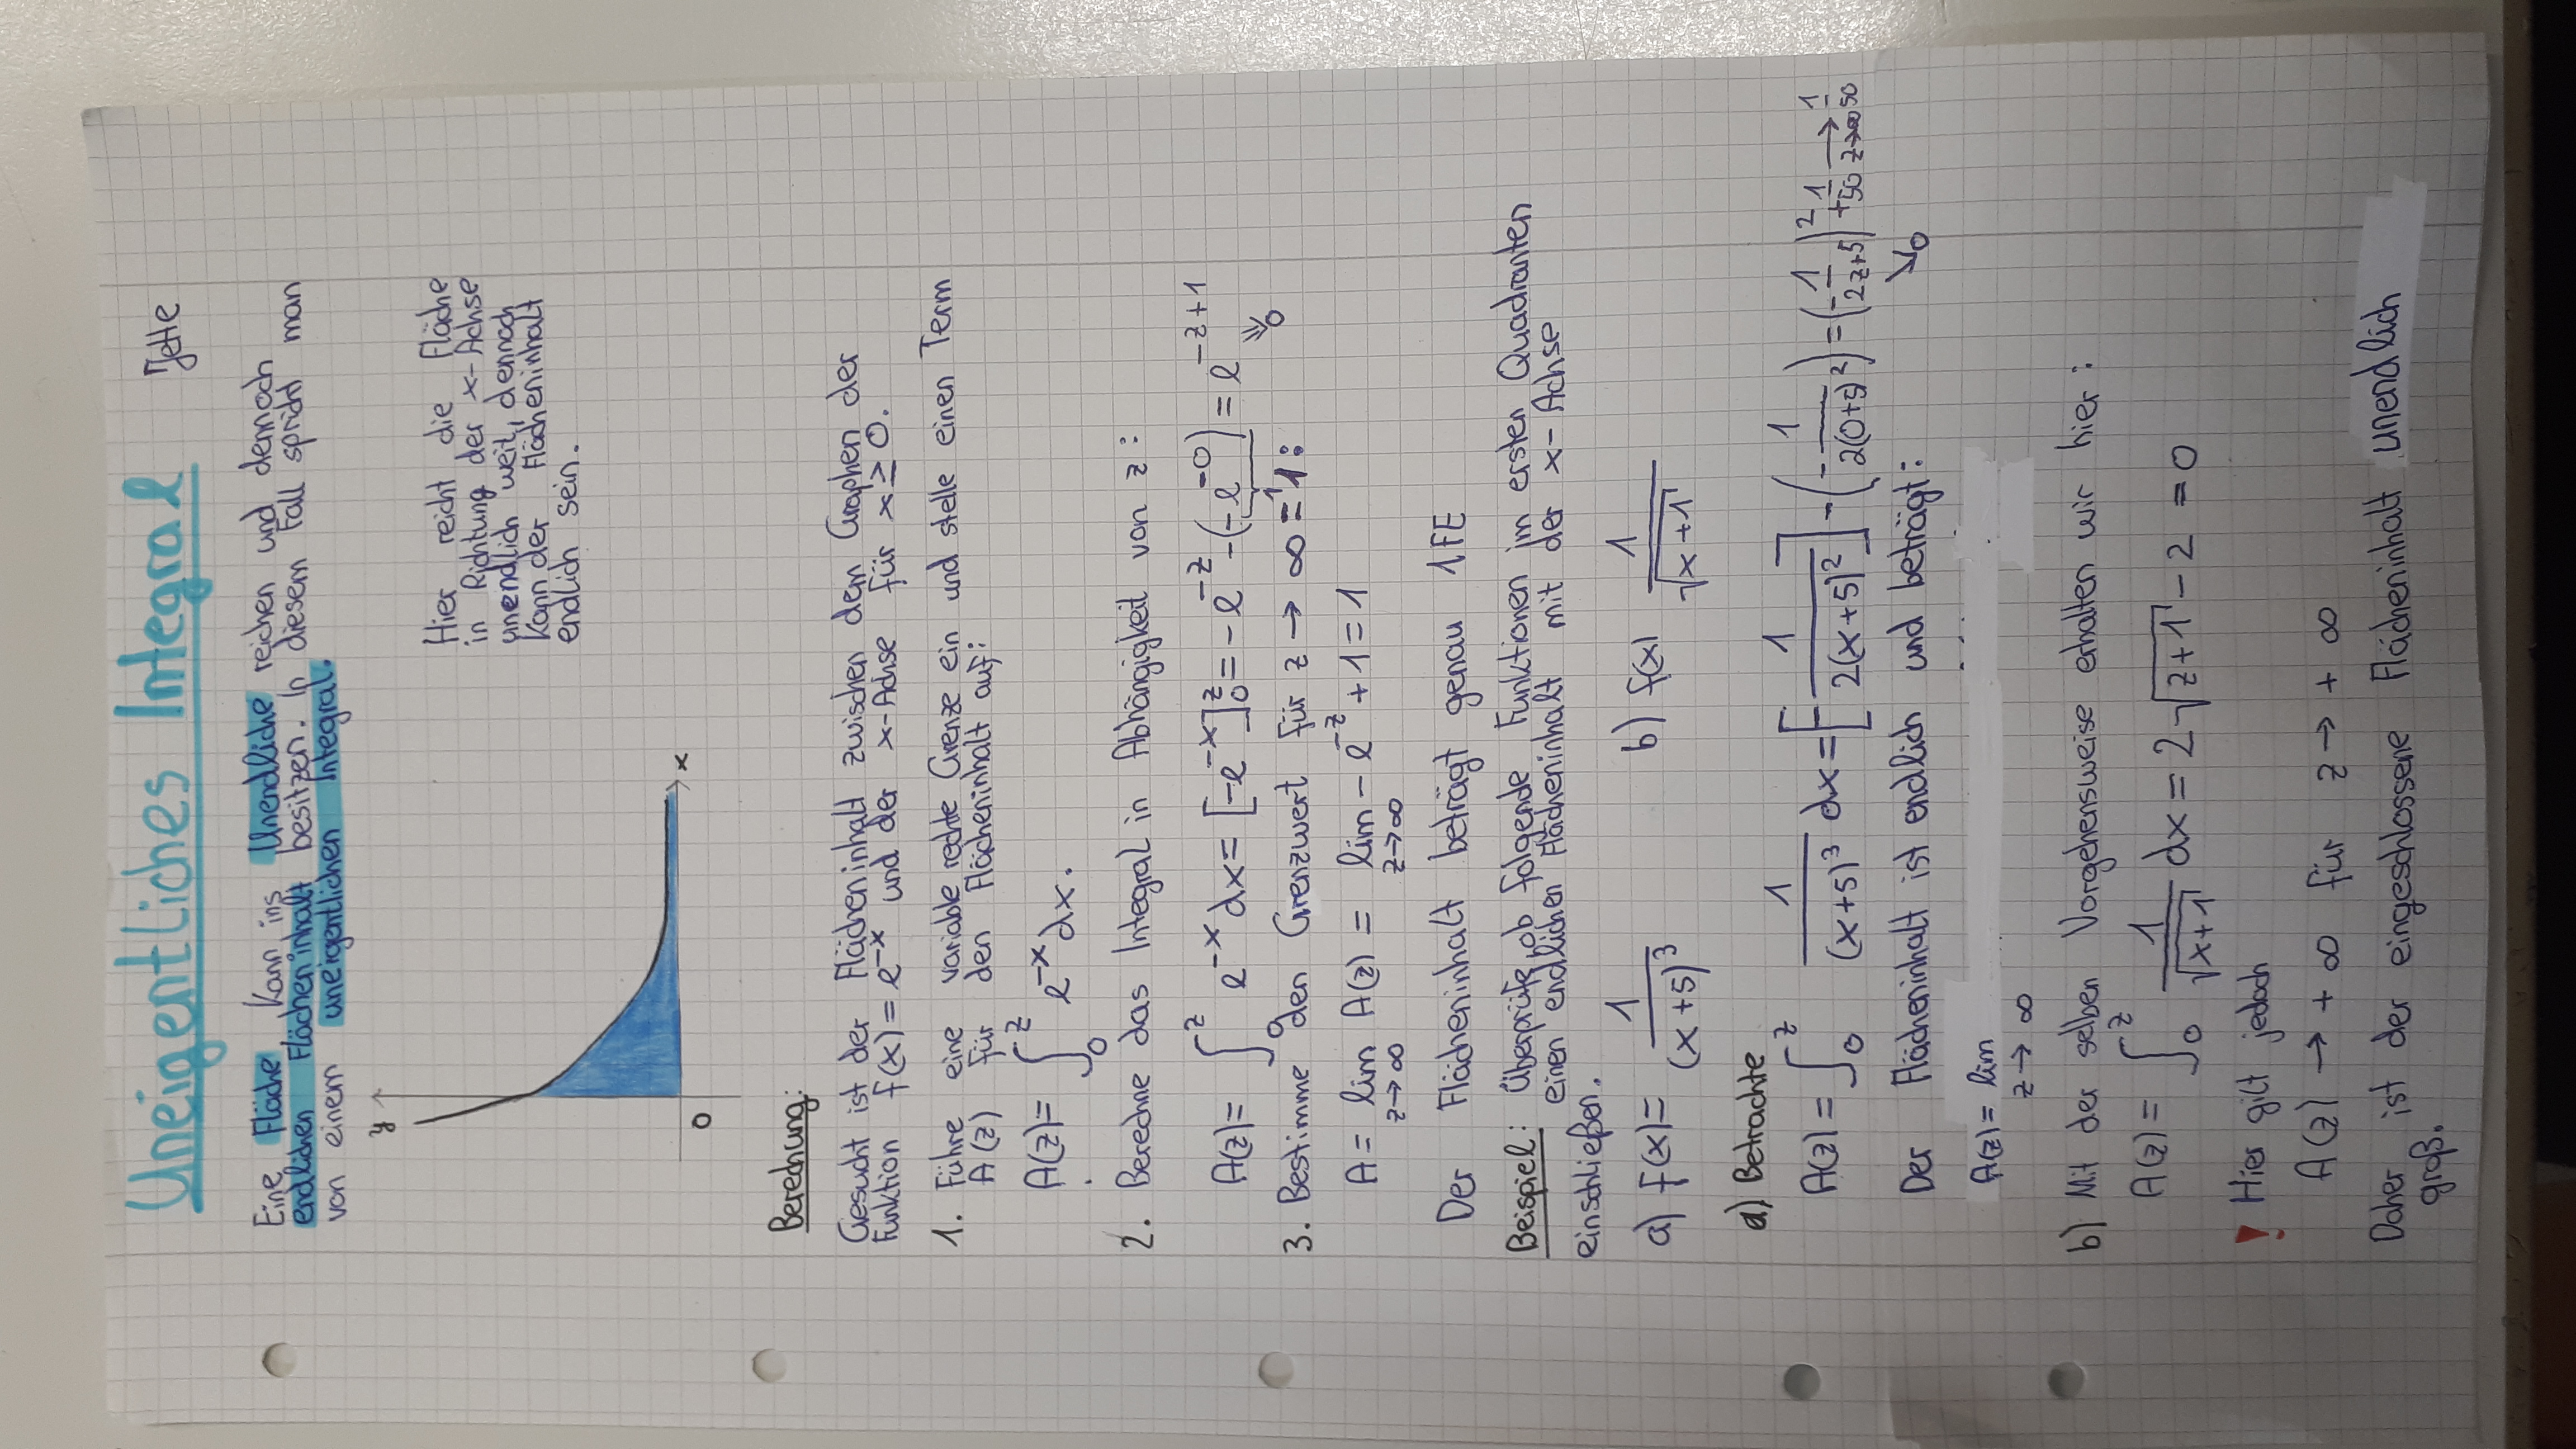 Uneigentliches Integral Jette
Eine Fläche kann ins Unendliche reichen und dennoch
endlichen Flächeninhalt besitzen. In diesem Fall spricht man
von einem uneigentlichen Integral.
y
x
0
Hier reicht die Fläche
in Richtung der x-Achse
unendlich weit, dennoch
kann der Flächeninhalt
endlich sein.
Berechnung:
Gesucht ist der Flächeninhalt zwischen dem Graphen der
Funktion f(x) = e^-x und der x-Achse für x ≥ 0.
1. Führe eine variable rechte Grenze ein und stelle einen Term
A(z) für den Flächeninhalt auf:
A(z) = ∫_0^z e^-x dx.
2. Berechne das Integral in Abhängigkeit von z:
A(z) = ∫_0^z e^-x dx = [-e^-x]_0^z = -e^-z - (-e^-0) = e^-z+1
=1 ↘0
3. Bestimme den Grenzwert für z → ∞:
A = lim A(z) = lim - e^-z + 1 = 1
z→∞ z→∞
Der Flächeninhalt beträgt genau 1FE
Beispiel: Überprüfe, ob folgende Funktionen im ersten Quadranten
einen endlichen Flächeninhalt mit der x-Achse
einschließen.
a) f(x) = 1/(x+5)^3 b) f(x) 1/√(x+1)
a) Betrachte
A(z) = ∫_0^z 1/(x+5)^3 dx = [-1/2(x+5)^2] - (-1/2(0+5)^2) = (-1/2z+5)^2 + 1/50 →_z→∞ 1/50
↘0
Der Flächeninhalt ist endlich und beträgt:
A(z) = lim
z→∞
b) Mit der selben Vorgehensweise erhalten wir hier:
A(z) = ∫_0^z 1/√(x+1) dx = 2√(z+1) - 2 = 0
! Hier gilt jedoch
A(z) → + ∞ für z → + ∞
Daher ist der eingeschlossene Flächeninhalt unendlich
groß.